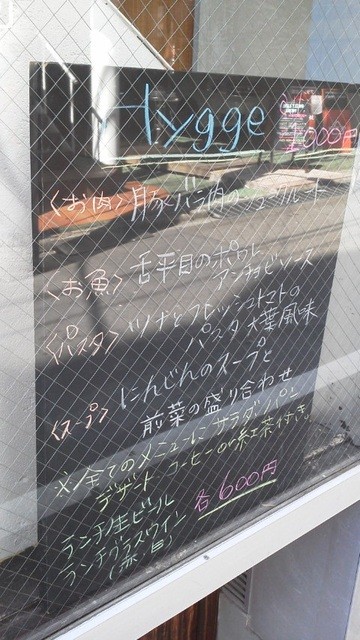 Hygge
1,000円
〈お肉〉豚バラ肉のシュークルート
〈お魚〉舌平目のポワレ
アンチョビソース
〈パスタ〉ツナとフレッシュトマトの
パスタ 大葉風味
〈スープ〉にんじんのスープと
前菜の盛り合わせ
※全てのメニューにサラダ・パン
デザート コーヒーor紅茶付き。
ランチ生ビール
ランチグラスワイン
(赤・白)
各600円